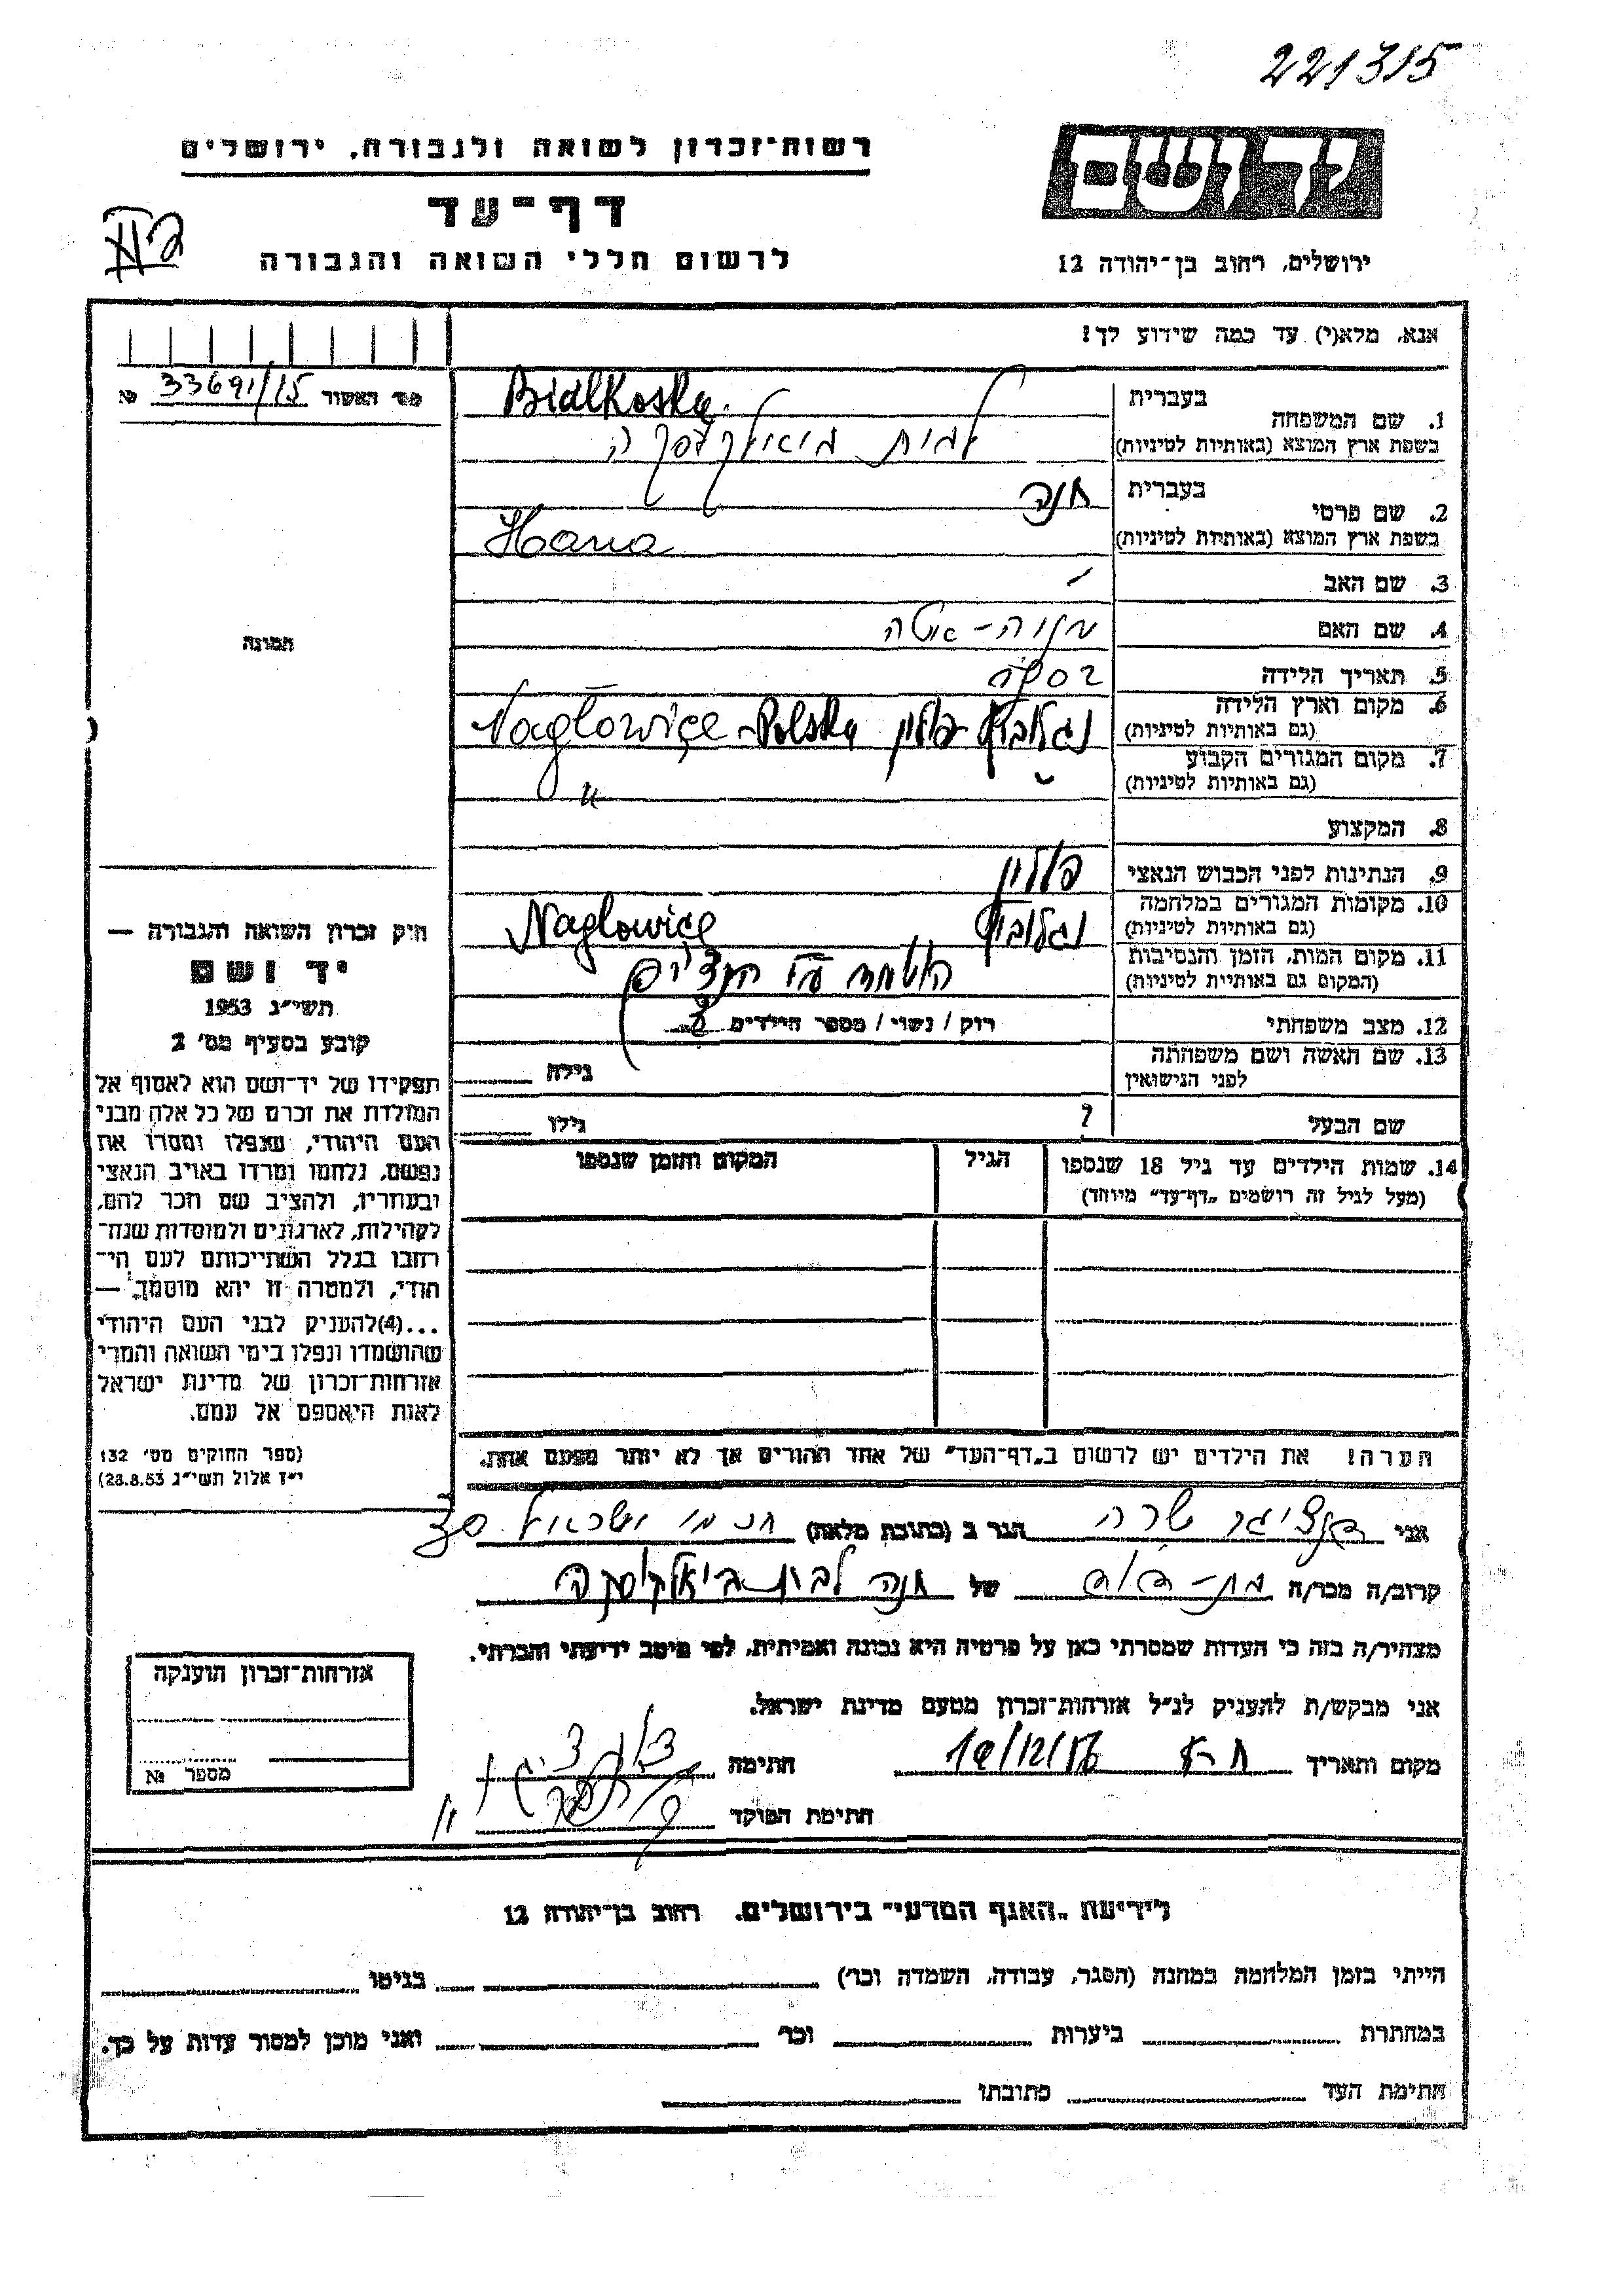 221315
רשות־זכרון לשואה ולגבורה, ירושלים
יד ושם
דף־עד
לרשום חללי השואה והגבורה
ירושלים, רחוב בן־יהודה 12
אנא, מלא(י) עד כמה שידוע לך!
מס' האשור № 33691/15
בעברית
1. שם המשפחה
בשפת ארץ המוצא (באותיות לטיניות)
Bialkoska
לבית ביאלקוסקה
בעברית
2. שם פרטי
בשפת ארץ המוצא (באותיות לטיניות)
חנה
Hana
3. שם האב
4. שם האם
5. תאריך הלידה
6. מקום וארץ הלידה
(גם באותיות לטיניות)
נגלוביץ פולין Nagłowice - Polska
7. מקום המגורים הקבוע
(גם באותיות לטיניות)
"
8. המקצוע
9. הנתינות לפני הכבוש הנאצי פולין
10. מקומות המגורים במלחמה
(גם באותיות לטיניות)
נגלוביץ Naglowice
11. מקום המות, הזמן והנסיבות
(המקום גם באותיות לטיניות)
הושמדו ע"י הנצים
12. מצב משפחתי רוק / נשוי / מספר הילדים
13. שם האשה ושם משפחתה
לפני הנישואין
גילה
שם הבעל ? גילו
14. שמות הילדים עד גיל 18 שנספו
(מעל לגיל זה רושמים „דף־עד" מיוחד)
הגיל
המקום והזמן שנספו
הערה! את הילדים יש לרשום ב„דף־העד" של אחד ההורים אך לא יותר מפעם אחת.
תמונה
חוק זכרון השואה והגבורה —
יד ושם
תשי"ג 1953
קובע בסעיף מס' 2
תפקידו של יד־ושם הוא לאסוף אל
המולדת את זכרם של כל אלה מבני
העם היהודי, שנפלו ומסרו את
נפשם, נלחמו ומרדו באויב הנאצי
ובעוזריו, ולהציב שם וזכר להם,
לקהילות, לארגונים ולמוסדות שנח־
רבו בגלל השתייכותם לעם הי־
הודי, ולמטרה זו יהא מוסמך, —
...(4)להעניק לבני העם היהודי
שהושמדו ונפלו בימי השואה והמרי
אזרחות־זכרון של מדינת ישראל
לאות היאספם אל עמם.
(ספר החוקים מס' 132
י"ז אלול תשי"ג 28.8.53)
אני דנציגר שרה הגר ב (כתובת מלאה)
קרוב/ה מכר/ה בת-דוד של חנה לבית ביאלקוסקה
מצהיר/ה בזה כי העדות שמסרתי כאן על פרטיה היא נכונה ואמיתית, לפי מיטב ידיעתי והכרתי.
אני מבקש/ת להעניק לנ"ל אזרחות־זכרון מטעם מדינת ישראל.
מקום ותאריך 19/12/56 חתימה
חתימת הפוקד
אזרחות־זכרון הוענקה
מספר №
לידיעת „האגף המדעי" בירושלים, רחוב בן־יהודה 12
הייתי בזמן המלחמה במחנה (הסגר, עבודה, השמדה וכו') בגיטו
במחתרת ביערות וכו' ואני מוכן למסור עדות על כך.
חתימת העד כתובתו